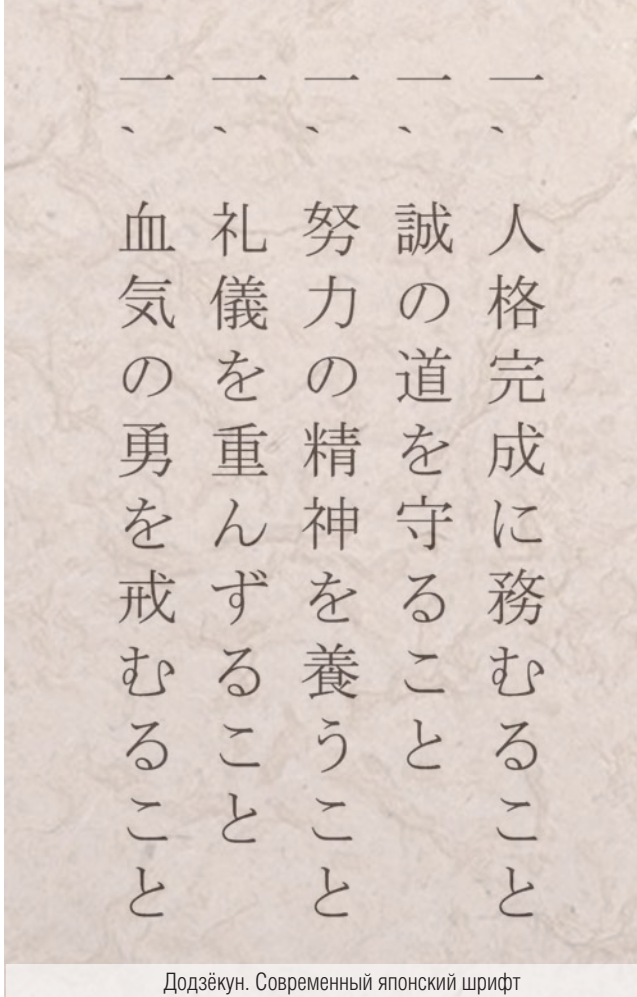 一、人格完成に務むること
一、誠の道を守ること
一、努力の精神を養うこと
一、礼儀を重んずること
一、血気の勇を戒むること
Додзёкун. Современный японский шрифт